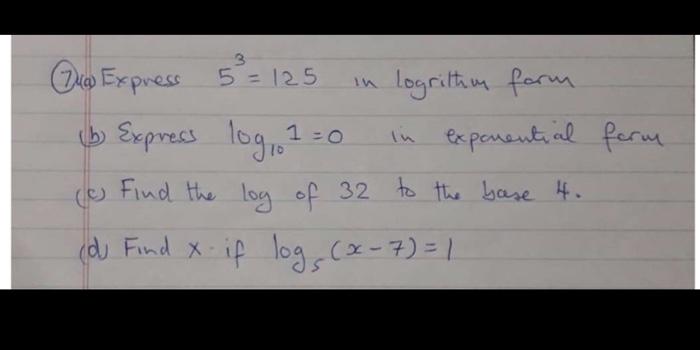 7(a) Express 5³ = 125 in logrithm form
(b) Express log₁₀ 1 = 0 in exponential form
(c) Find the log of 32 to the base 4.
(d) Find x if log₅ (x - 7) = 1